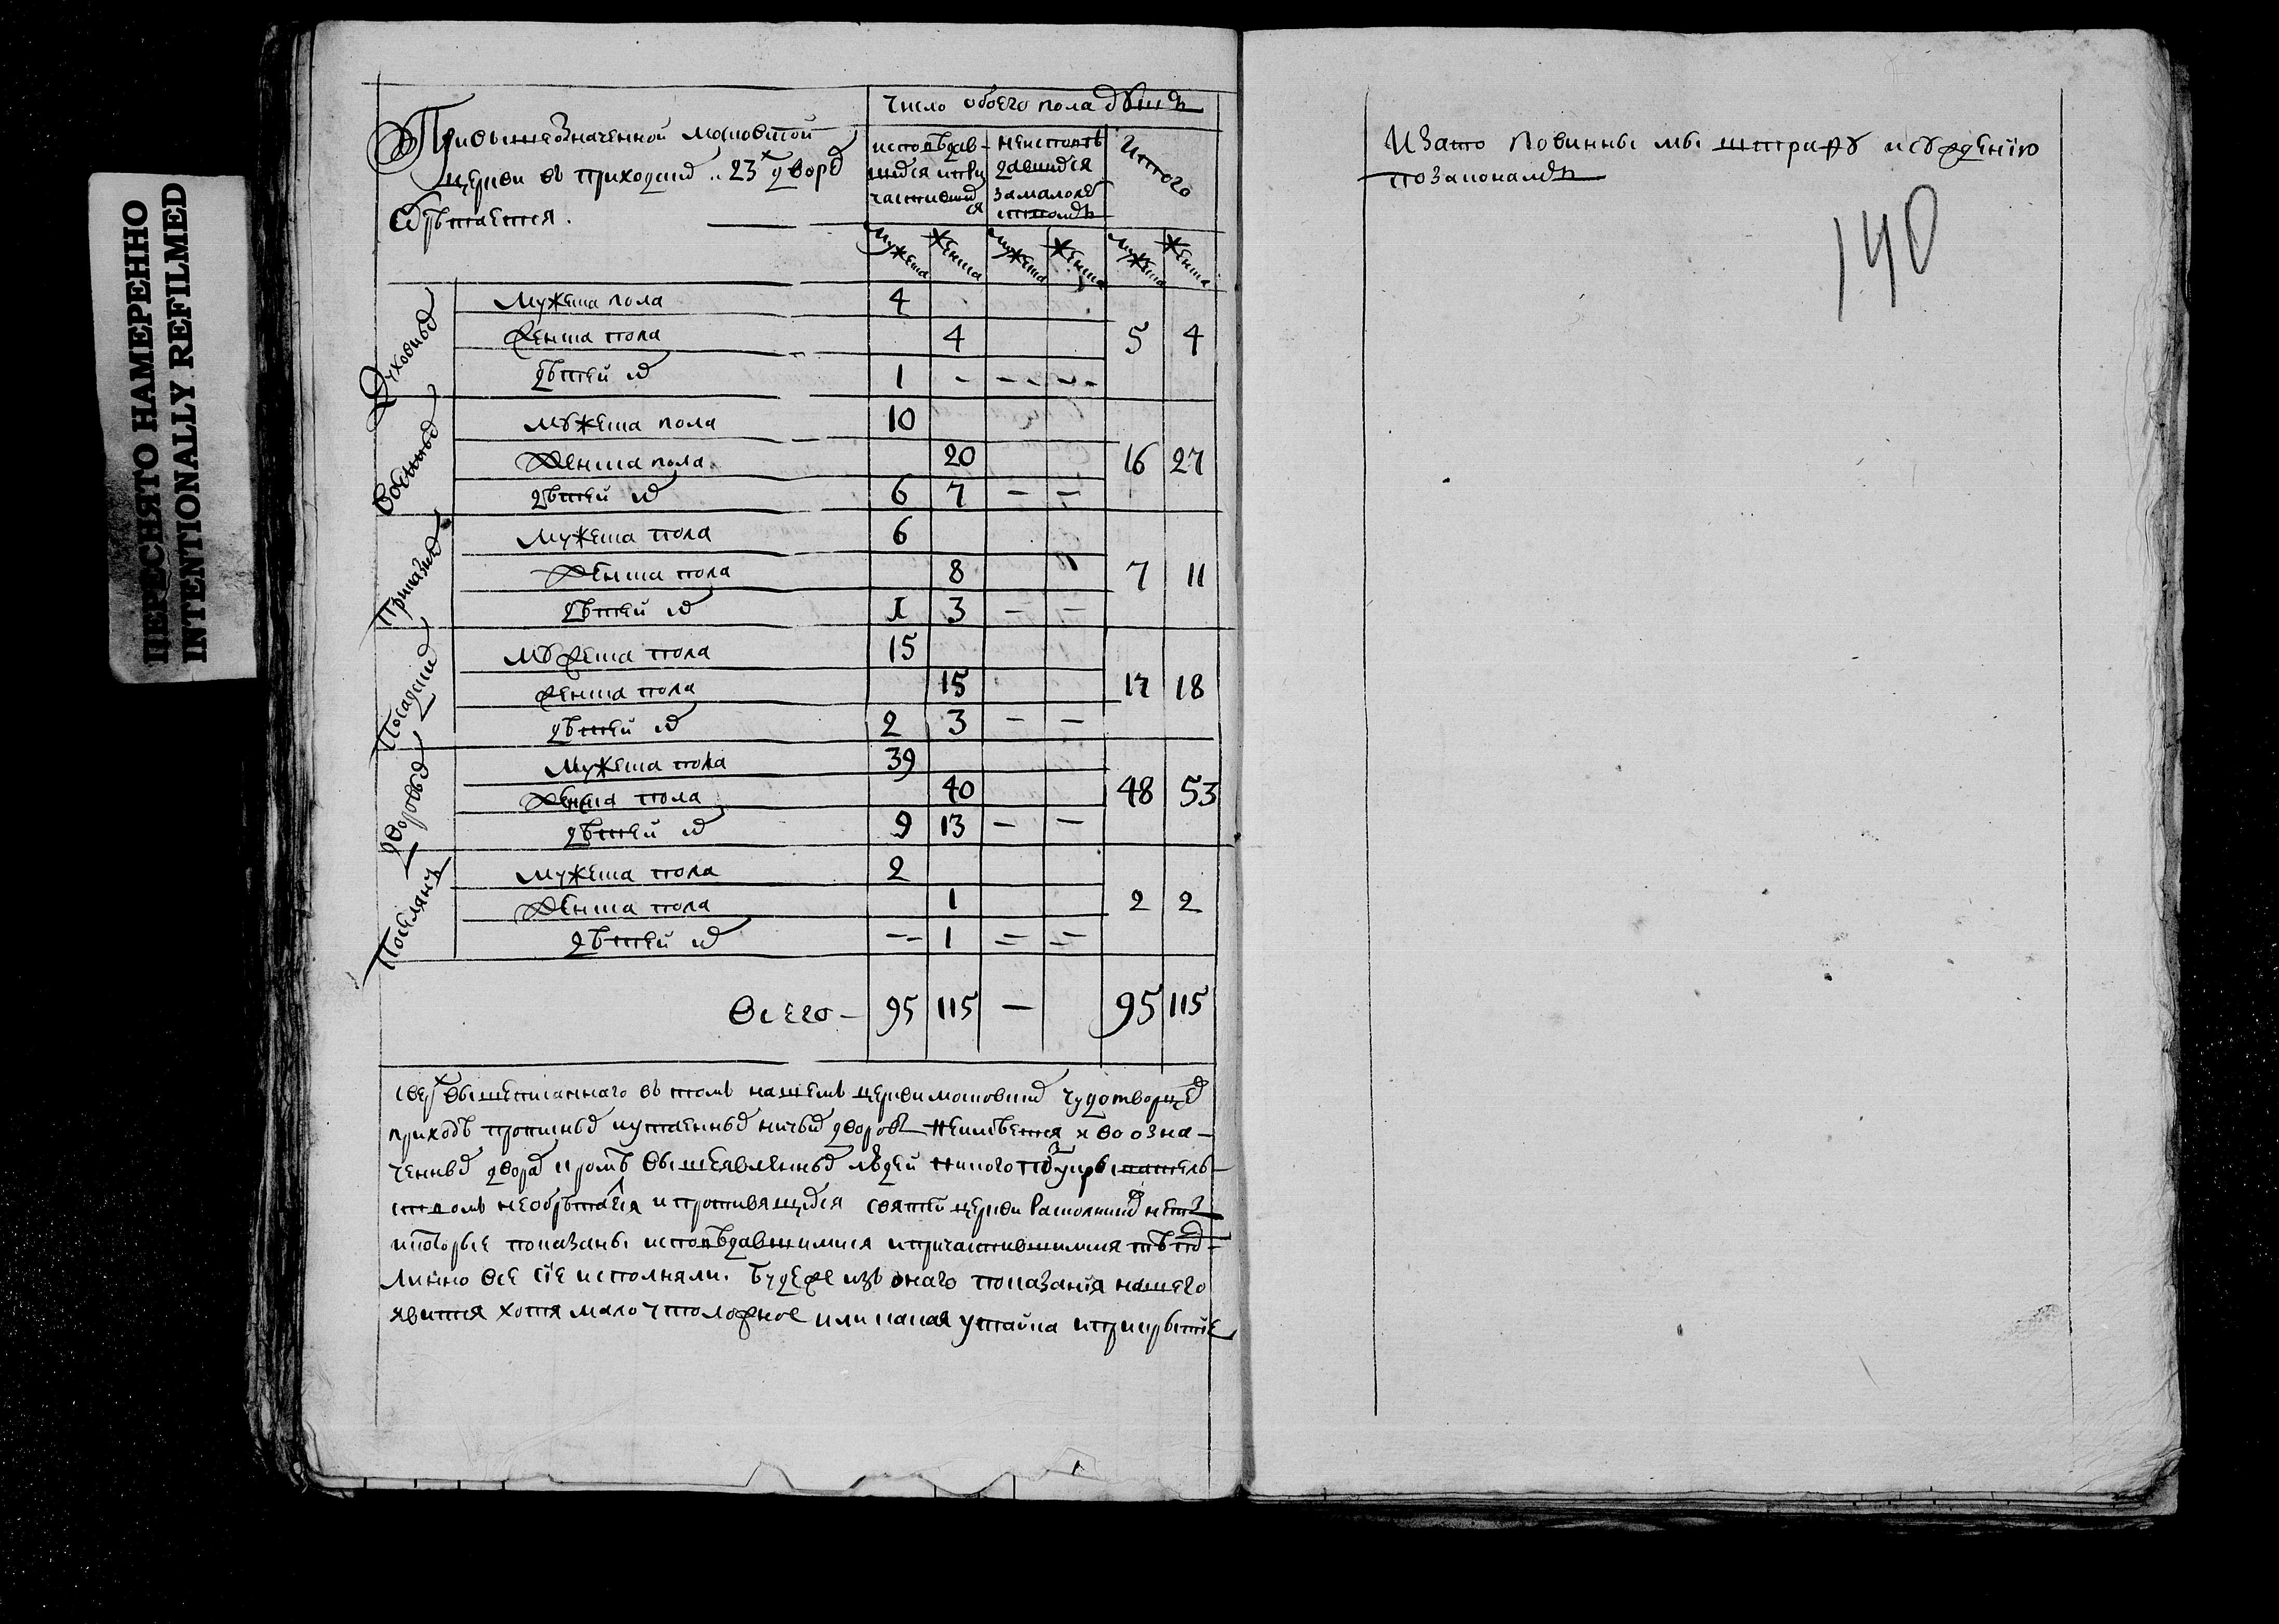 ПЕРЕСНЯТО НАМЕРЕННО
INTENTIONALLY REFILMED
При вышеозначенной московской
церкви въ приходскихъ 23х дворахъ
обрѣтается.
число обоего пола душъ
исповѣдав-
шихся и при
частившихся
неисповѣ
давшихся
за малолѣ
тствомъ
Итого
Мужеска Женска Мужеска Женска Мужеска Женска
Духовныхъ
Мужеска пола 4
Женска пола 4 5 4
дѣтей ихъ 1 - - - - -
Военныхъ
Мужеска пола 10
Женска пола 20 16 27
дѣтей ихъ 6 7 - -
Приказныхъ
Мужеска пола 6
Женска пола 8 7 11
дѣтей ихъ 1 3 - -
Посадскихъ
Мужеска пола 15
Женска пола 15 17 18
дѣтей ихъ 2 3 - -
Дворовыхъ
Мужеска пола 39
Женска пола 40 48 53
дѣтей ихъ 9 13 - -
Поселянъ
Мужеска пола 2
Женска пола 1 2 2
дѣтей ихъ - 1 = =
Всего - 95 115 - 95 115
сверхъ вышеписаннаго въ томъ нашемъ церкви московскихъ чудотворцевъ
приходѣ пропискныхъ и утаенныхъ ничьихъ дворовъ неимѣется и во озна-
ченныхъ дворахъ кромѣ вышеявленныхъ людей никого подъ укрывательс-
твомъ необрѣтается и противящихся святѣй церкви раскольниковъ нетъ
и которые показаны исповѣдавшимися и причастившимися тѣ под-
линно все сіе исполняли. Буде же изъ онаго показанія нашего
явится хотя мало что ложное или какая утайка и прикрытіе
И за то повинны мы штрафу и сужденію
по законамъ
140